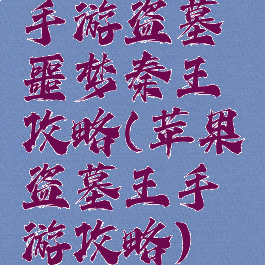 手游盗墓
噩梦秦王
攻略(苹果
盗墓王手
游攻略)